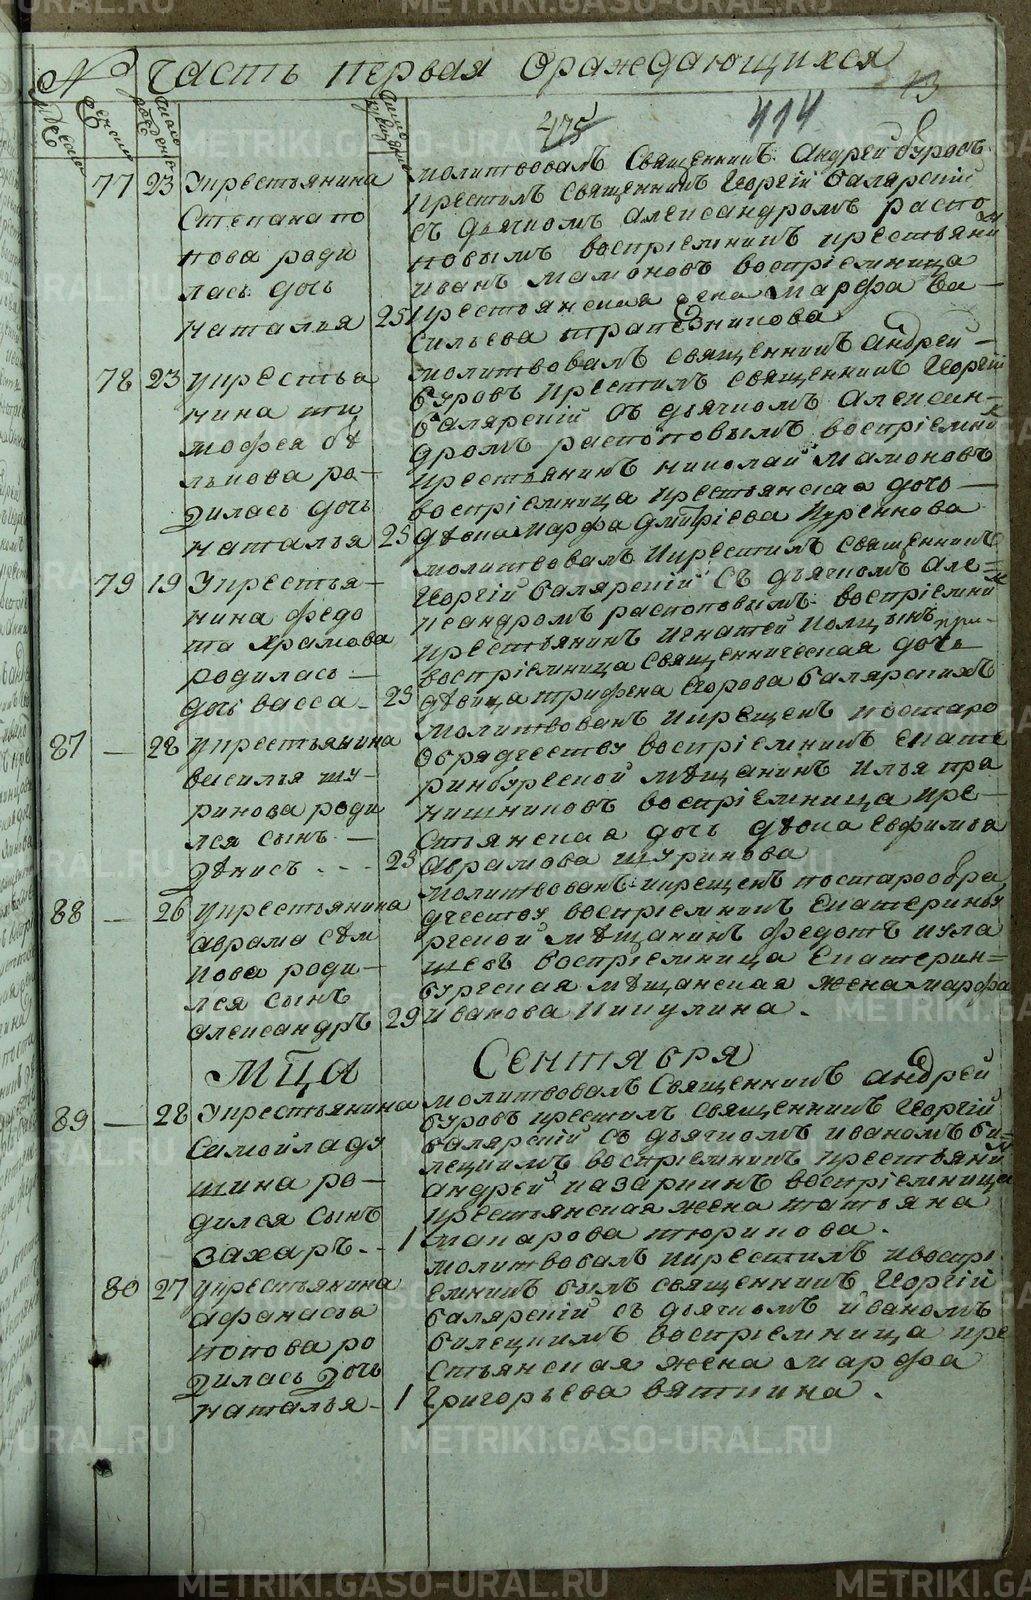 METRIKI.GASO-URAL.RU
№
Часть первая ораждающихся
13
мужеска
женска
число рожденія
число крещенія
475
414
77 23 Укрестьянина
Степана по
пова роди
лась дочь
наталья 25
молитвовалъ Священникъ Андрей буровъ
крестилъ священникъ Георгій балярскій
съ дьячкомъ александромъ распо
повымъ воспріемникъ крестьяни
иванъ мамоновъ воспріемница
крестьянская жена марфа Ва—
сильева трапезникова
78 23 укрестья
нина ти
мофея бѣ
лькова ро—
дилась дочь
наталья 25
молитвовалъ священникъ андрей—
буровъ крестилъ священникъ Георгій
балярскій съ дьячкомъ алексан—
дромъ распоповымъ воспріемни
крестьянинъ николай мамоновъ
воспріемница крестьянская дочь—
дѣвка марфа дмитріева
79 19 Укрестья—
нина федо
та храмова
родилась—
дочь васса— 23
молитвовалъ икрестилъ священникъ
Георгій балярскій съ дьячкомъ але=
ксандромъ распоповымъ воспріемни
крестьянинъ игнатей
воспріемница священническая дочь
дѣвица трифена Егорова балярскихъ
87 — 28 укрестьянина
василья шу—
ринова роди
лся сынъ—
Денисъ - - - 23
молитвованъ икрещенъ постаро
обрядчеству воспріемникъ екате
ринбургской мѣщанинъ илья пра
нишниковъ воспріемница кре—
стьянская дочь дѣвка евфимья
аврамова шуринова
88 — 26 укрестьянина
аврама сѣм
кова роди—
лся сынъ
александръ 29
молитвованъ икрещенъ постарообра
дчеству воспріемникъ екатеринбу
ргской мѣщанинъ федотъ кула
шевъ воспріемница екатерин=
бургская мѣщанская жена марфа
иванова кикулина.
Мца Сентября
89 — 28 Укрестьянина
самойла ду
шина ро—
дился сынъ
захаръ - - 1
молитвовалъ Священникъ андрей
буровъ крестилъ священникъ Георгій
балярскій съ дьячкомъ иваномъ би=
лецкимъ воспріемникъ крестьяни
андрей назаркинъ воспріемница
крестьянская жена татьяна
макарова тюрикова.
80 27 укрестьянина
афанасья
попова ро
дилась Дочь
наталья— 1
молитвовалъ икрестилъ ивоспрі
емникъ былъ священникъ Георгій
балярскій съ дьячкомъ иваномъ
билецкимъ воспріемница кре
стьянская жена марфа
григорьева вяткина.